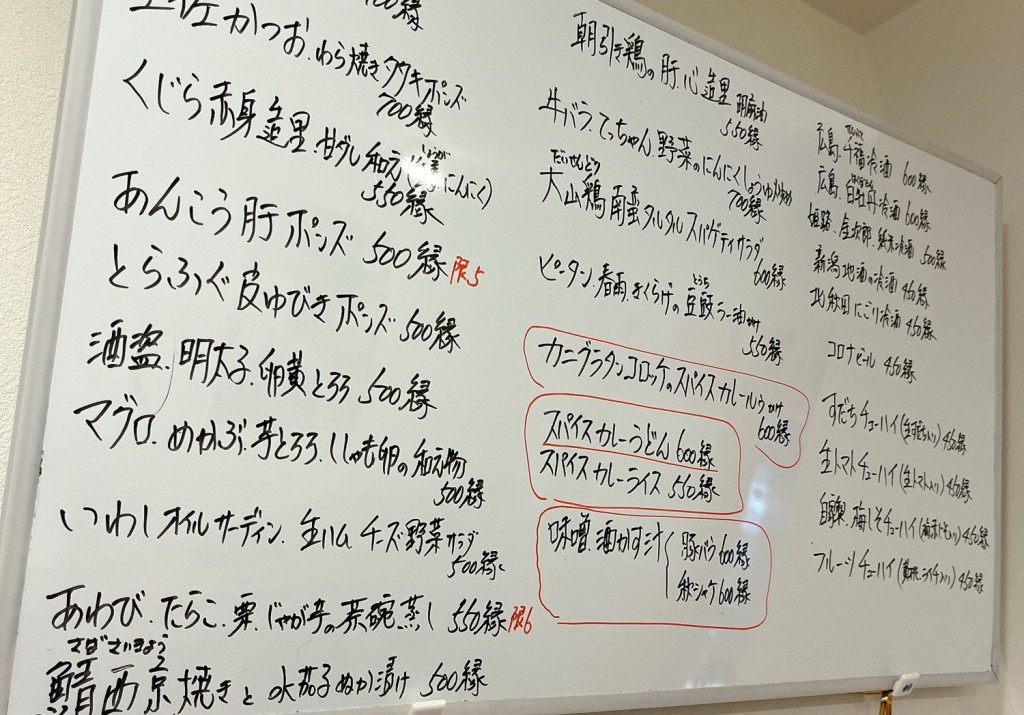 かつお、わら焼きタタキポンズ
700縁
くじら赤身造里、甘ダレ和え(生姜にんにく)
しょうが
550縁
あんこう肝ポンズ 500縁 限5
とらふぐ皮ゆびきポンズ 500縁
酒盗、明太子、卵黄とろろ 500縁
マグロ、めかぶ、芋とろろ、ししゃも卵の和え物
500縁
いわしオイルサーディン、生ハム チーズ野菜サラダ
500縁
あわび、たらこ、栗、じゃが芋の茶碗蒸し 550縁 限6
さばさいきょう
鯖西京焼きと水茄子ぬか漬け 500縁
朝引き鶏の肝、心造里 胡麻油
550縁
牛バラ、てっちゃん、野菜のにんにくしょうゆ炒め
700縁
だいせんどり
大山鶏南蛮タルタルスパゲティサラダ
600縁
ピータン、春雨、きくらげの豆豉ラー油かけ
とうち
550縁
カニグラタンコロッケのスパイスカレールゥかけ
600縁
スパイスカレーうどん 600縁
スパイスカレーライス 550縁
味噌、酒かす汁
豚バラ 600縁
秋シャケ 600縁
広島、千福冷酒 600縁
広島、白牡丹冷酒 600縁
姫路、 純米冷酒 500縁
新潟地酒の冷酒 450縁
北秋田にごり冷酒 450縁
コロナビール 450縁
すだちチューハイ(生すだち入り) 450縁
生トマトチューハイ(生トマト入り) 450縁
自家製、梅しそチューハイ(梅赤しそ入り) 450縁
フルーツチューハイ 450縁